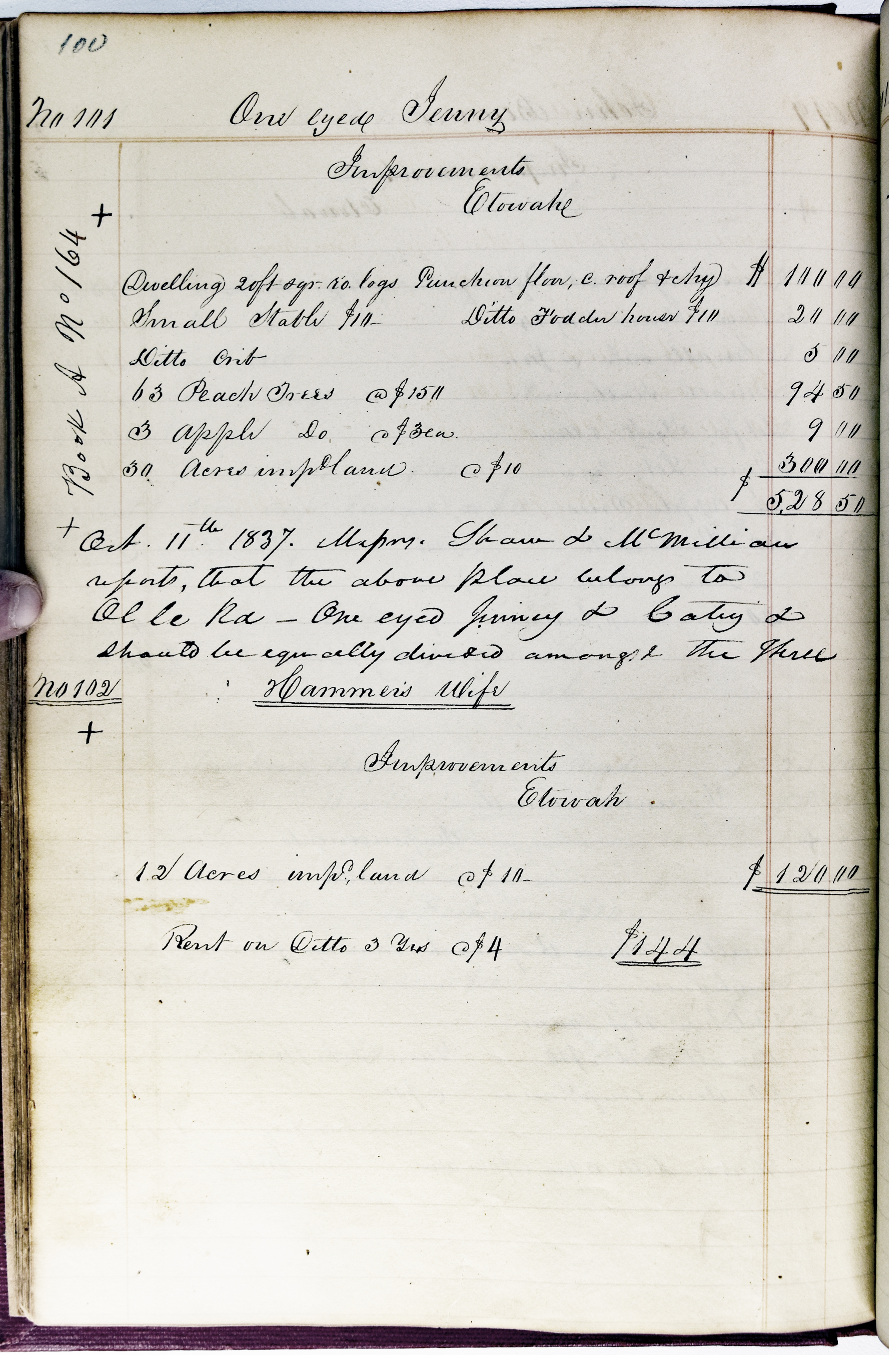 100
No 101 One eyed Jenny
Improvements
Etowah
+
Book A No 164
+
Dwelling 20ft sqr. ro. logs Puncheon floor, c. roof & chy $ 100 00
Small Stable $10 Ditto Fodder house $10 20 00
Ditto Crib 5 00
63 Peach Trees @ $150 94 50
3 Apple Do @ $3 ea. 9 00
30 Acres impd land @ $10 300 00
$ 528 50
Oct. 11th 1837. Messrs. Shaw & McMillian
reports, that the above place belongs to
One eyed Jinney & Caty &
should be equally divided amongst the three
No 102 Hammer's Wife
+
Improvements
Etowah
12 Acres impd, land @ $10 $ 120 00
Rent on Ditto 3 Yrs @ $4 $144